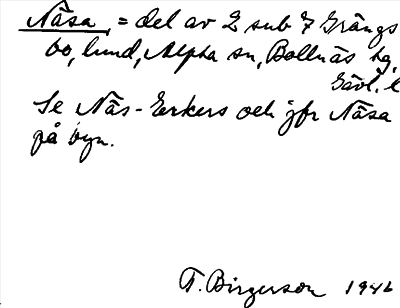 Näsa, = del av 2 sub 7 Grängs
bo, lund, Alpha sn, Bollnäs hg,
Gävl. l
Se Näs-Erkers och jfr Näsa
på byn.
T. Birgerson 1946